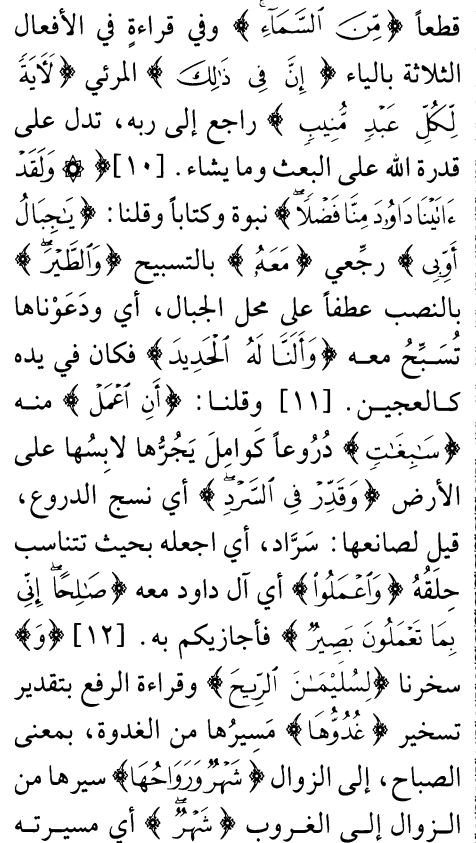 قطعاً ﴿مِّنَ السَّمَآءِ﴾ وفي قراءةٍ في الأفعال
الثلاثة بالياء ﴿إِنَّ فِى ذَٰلِكَ﴾ المرئي ﴿لَأٓيَةً
لِّكُلِّ عَبْدٍ مُّنِيبٍ﴾ راجع إلى ربه، تدل على
قدرة الله على البعث وما يشاء. [١٠] ﴿۞ وَلَقَدْ
ءَاتَيْنَا دَاوُۥدَ مِنَّا فَضْلًاۖ﴾ نبوة وكتاباً وقلنا: ﴿يَٰجِبَالُ
أَوِّبِى﴾ رجِّعي ﴿مَعَهُۥ﴾ بالتسبيح ﴿وَٱلطَّيْرَۖ﴾
بالنصب عطفاً على محل الجبال، أي ودَعَوْناها
تُسَبِّحُ معه ﴿وَأَلَنَّا لَهُ ٱلْحَدِيدَ﴾ فكان في يده
كالعجين. [١١] وقلنا: ﴿أَنِ ٱعْمَلْ﴾ منه
﴿سَٰبِغَٰتٍ﴾ دُرُوعاً كَوامِلَ يَجُرُّها لابِسُها على
الأرض ﴿وَقَدِّرْ فِى ٱلسَّرْدِۖ﴾ أي نسج الدروع،
قيل لصانعها: سَرَّاد، أي اجعله بحيث تتناسب
حِلَقُهُ ﴿وَٱعْمَلُوا۟﴾ أي آل داود معه ﴿صَٰلِحًاۖ إِنِّى
بِمَا تَعْمَلُونَ بَصِيرٌ﴾ فأجازيكم به. [١٢] ﴿وَ﴾
سخرنا ﴿لِسُلَيْمَٰنَ ٱلرِّيحَ﴾ وقراءة الرفع بتقدير
تسخير ﴿غُدُوُّهَا﴾ مَسِيرُها من الغدوة، بمعنى
الصباح، إلى الزوال ﴿شَهْرٌ وَرَوَاحُهَا﴾ سيرها من
الزوال إلى الغروب ﴿شَهْرٌۖ﴾ أي مسيرته